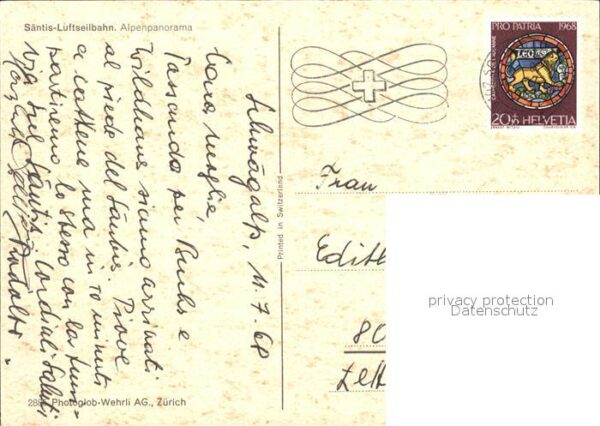 Säntis-Luftseilbahn. Alpenpanorama
Schwägalp, 11.7.68
Cara moglie,
Passando per Buchs e
Wildhaus siamo arrivati
al piede del Säntis. Piove
a catene ma in 10 minuti
partiremo lo stesso con la fune
via sul Säntis. Cordiali saluti
Rodolfo
Printed in Switzerland
Photoglob-Wehrli AG., Zürich
PRO PATRIA 1968
LEO
20+10 HELVETIA
Frau
Edith
80
privacy protection
Datenschutz